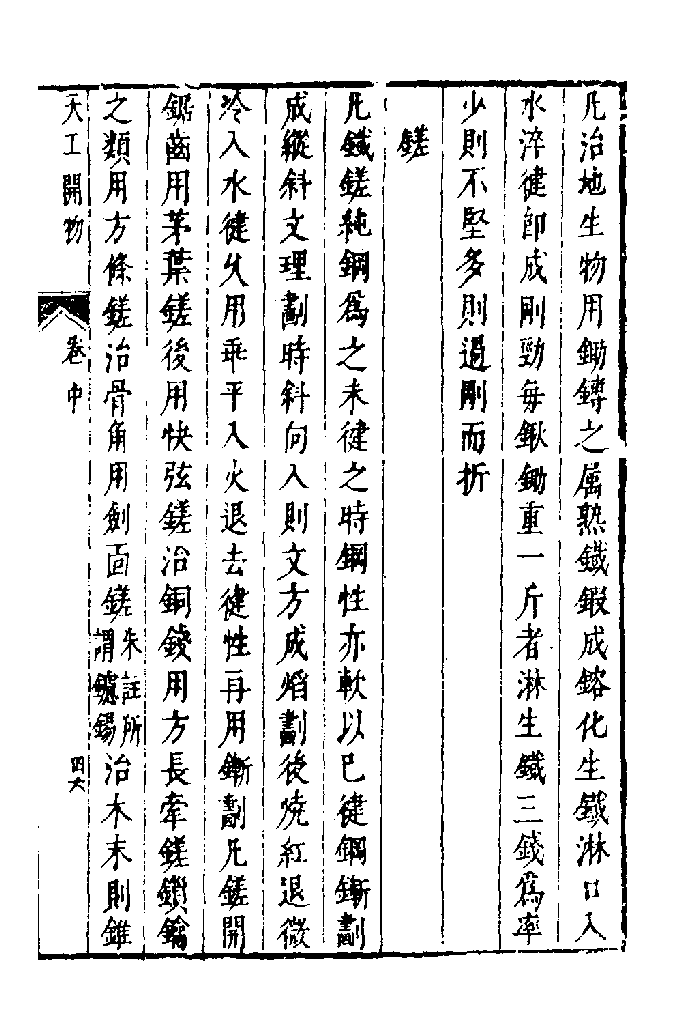 凡治地生物用鋤鎛之屬熟鐵鍜成鎔化生鐵淋口入
水淬健即成剛勁每鍬鋤重一斤者淋生鐵三錢爲率
少則不堅多則過剛而折
鎈
凡鐵鎈純鋼爲之未健之時鋼性亦軟以已健鋼鏨劃
成縱斜文理劃時斜向入則文方成焰劃後燒紅退微
冷入水健久用乖平入火退去健性再用鏨劃凡鎈開
鋸齒用茅葉鎈後用快弦鎈治銅錢用方長牽鎈鎖鑰
之類用方條鎈治骨角用劍面鎈朱註所謂鑢鍚治木末則錐
天工開物 卷中 四六